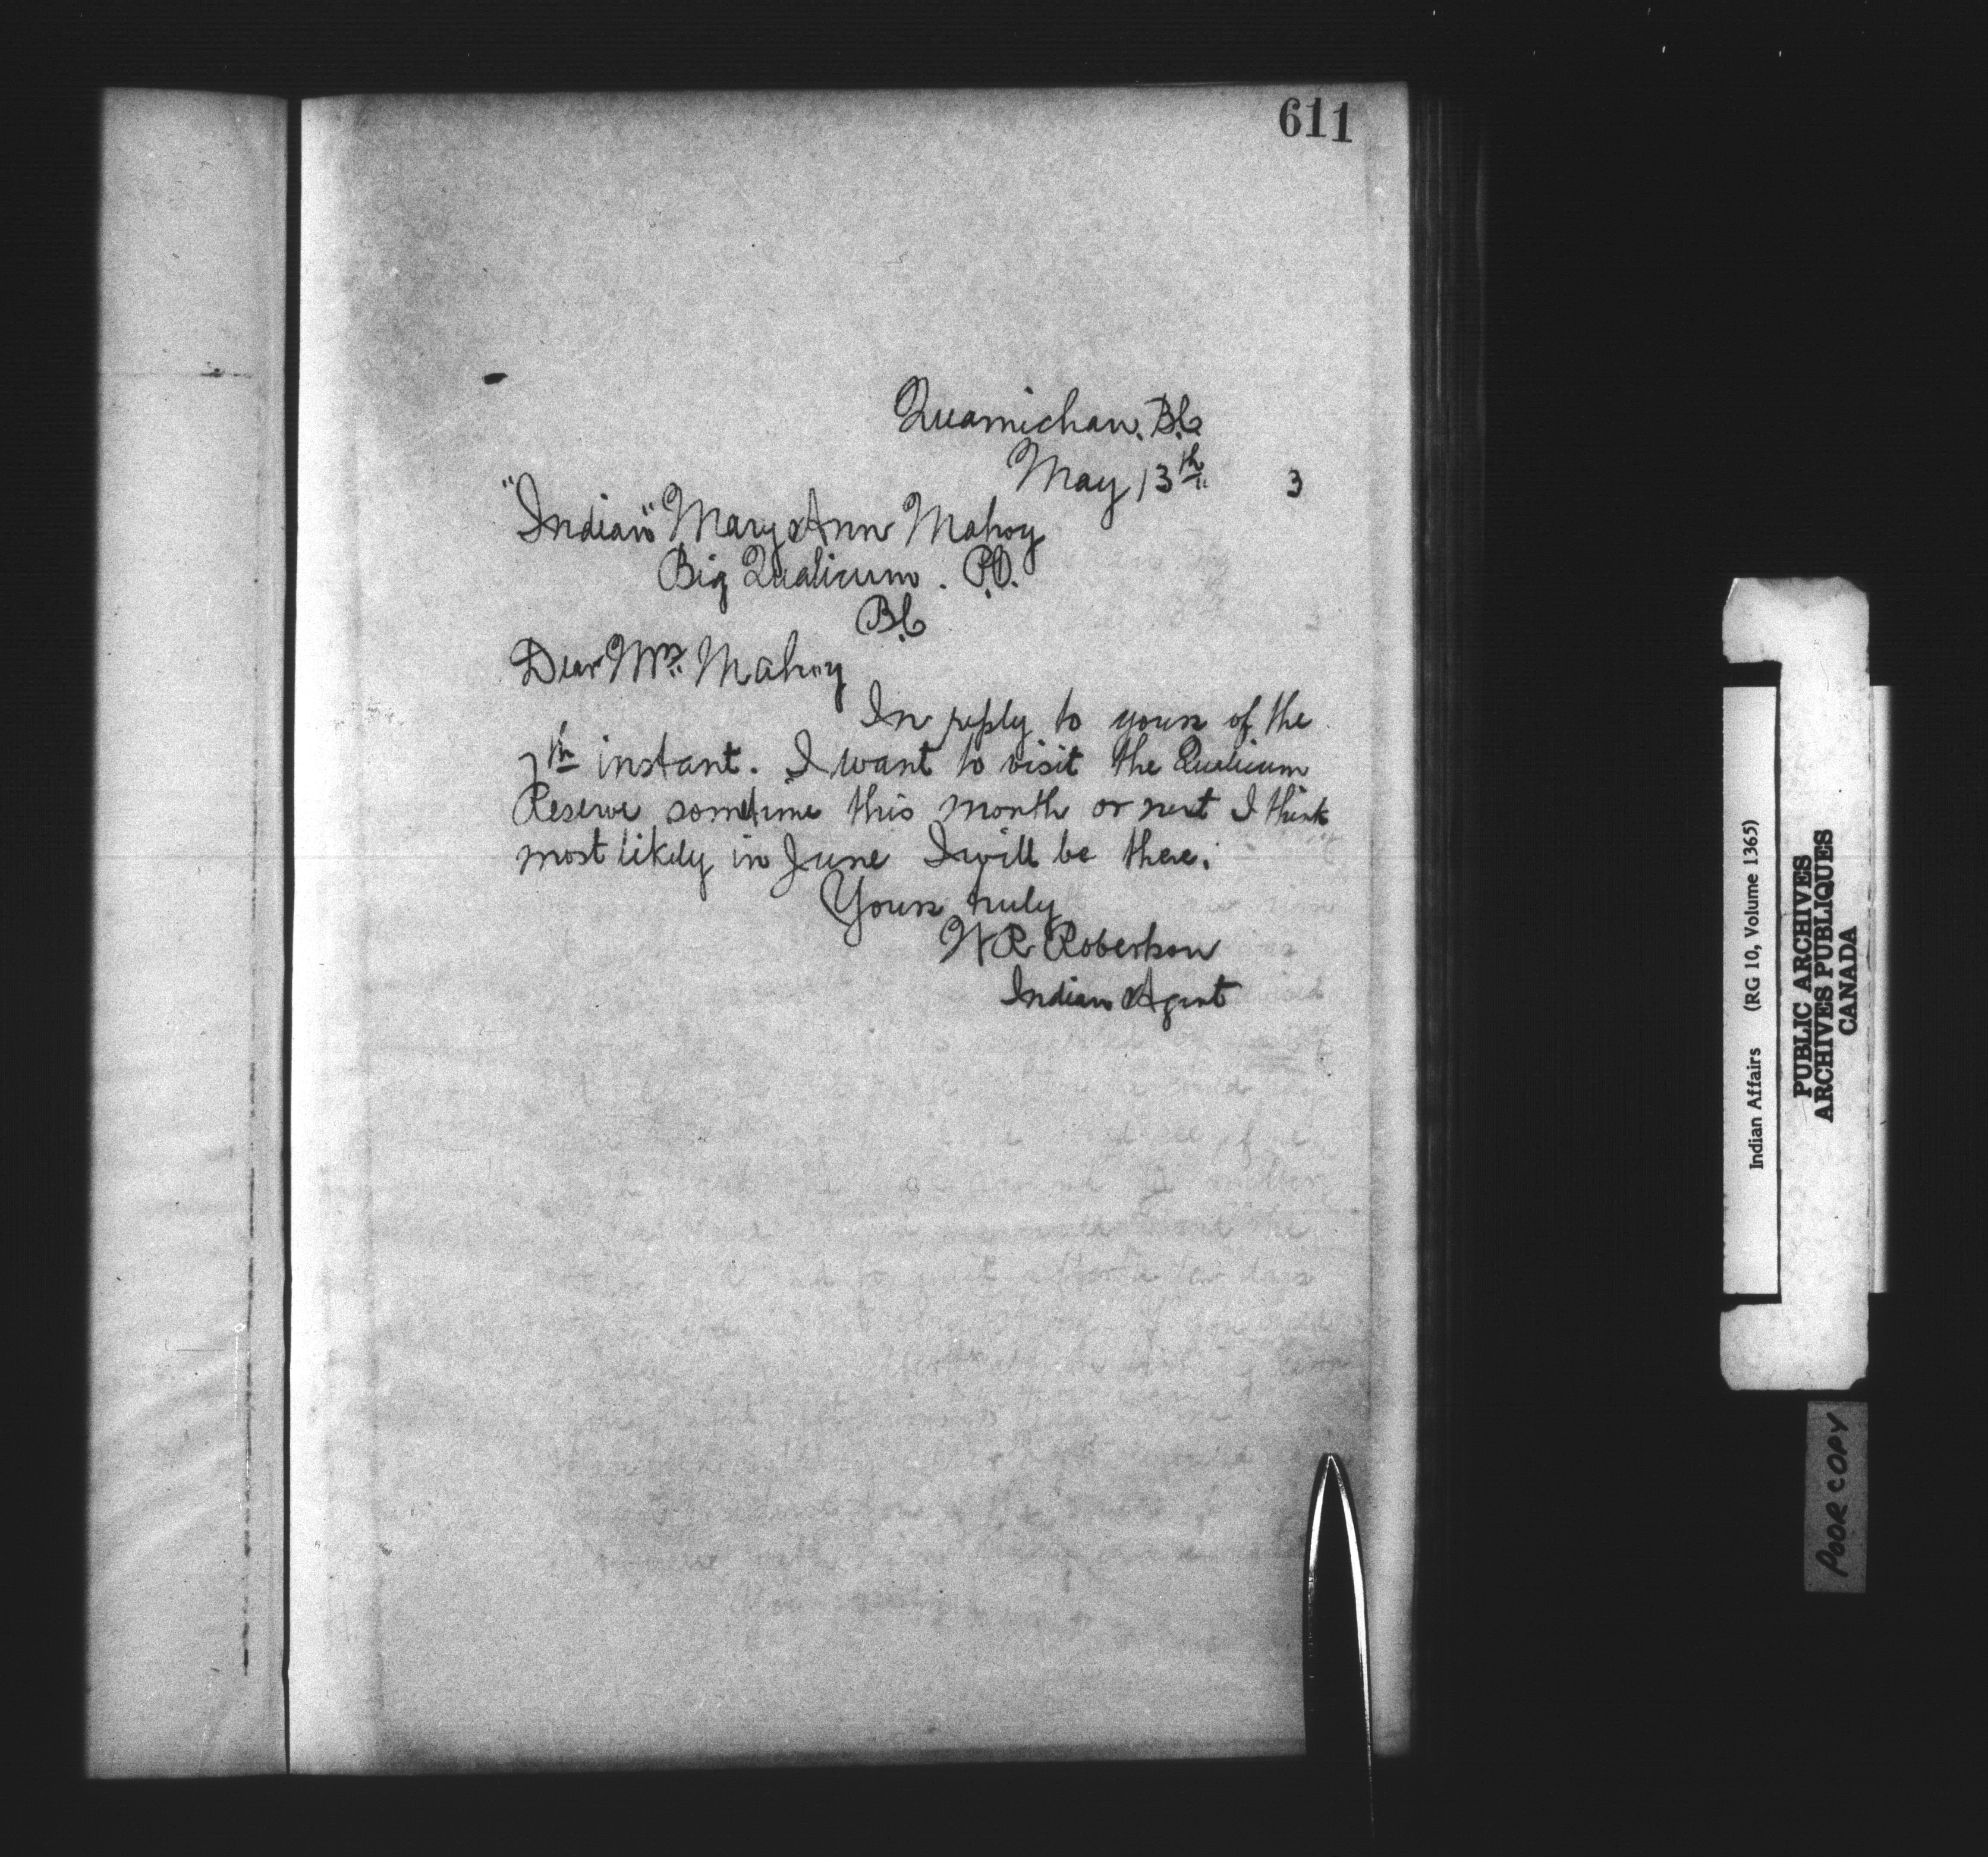 611
Quamichan. B.C
May 13th 3
"Indian" Mary Ann Mahoy
Big Qualicum. P.O.
B.C
Dear Mrs. Mahoy
In reply to yours of the
7th instant. I want to visit the Qualicum
Reserve sometime this month or next I think
most likely in June I will be there.
Yours truly
W R Robertson
Indian Agent
Indian Affairs (RG 10, Volume 1365)
PUBLIC ARCHIVES
ARCHIVES PUBLIQUES
CANADA
POOR COPY